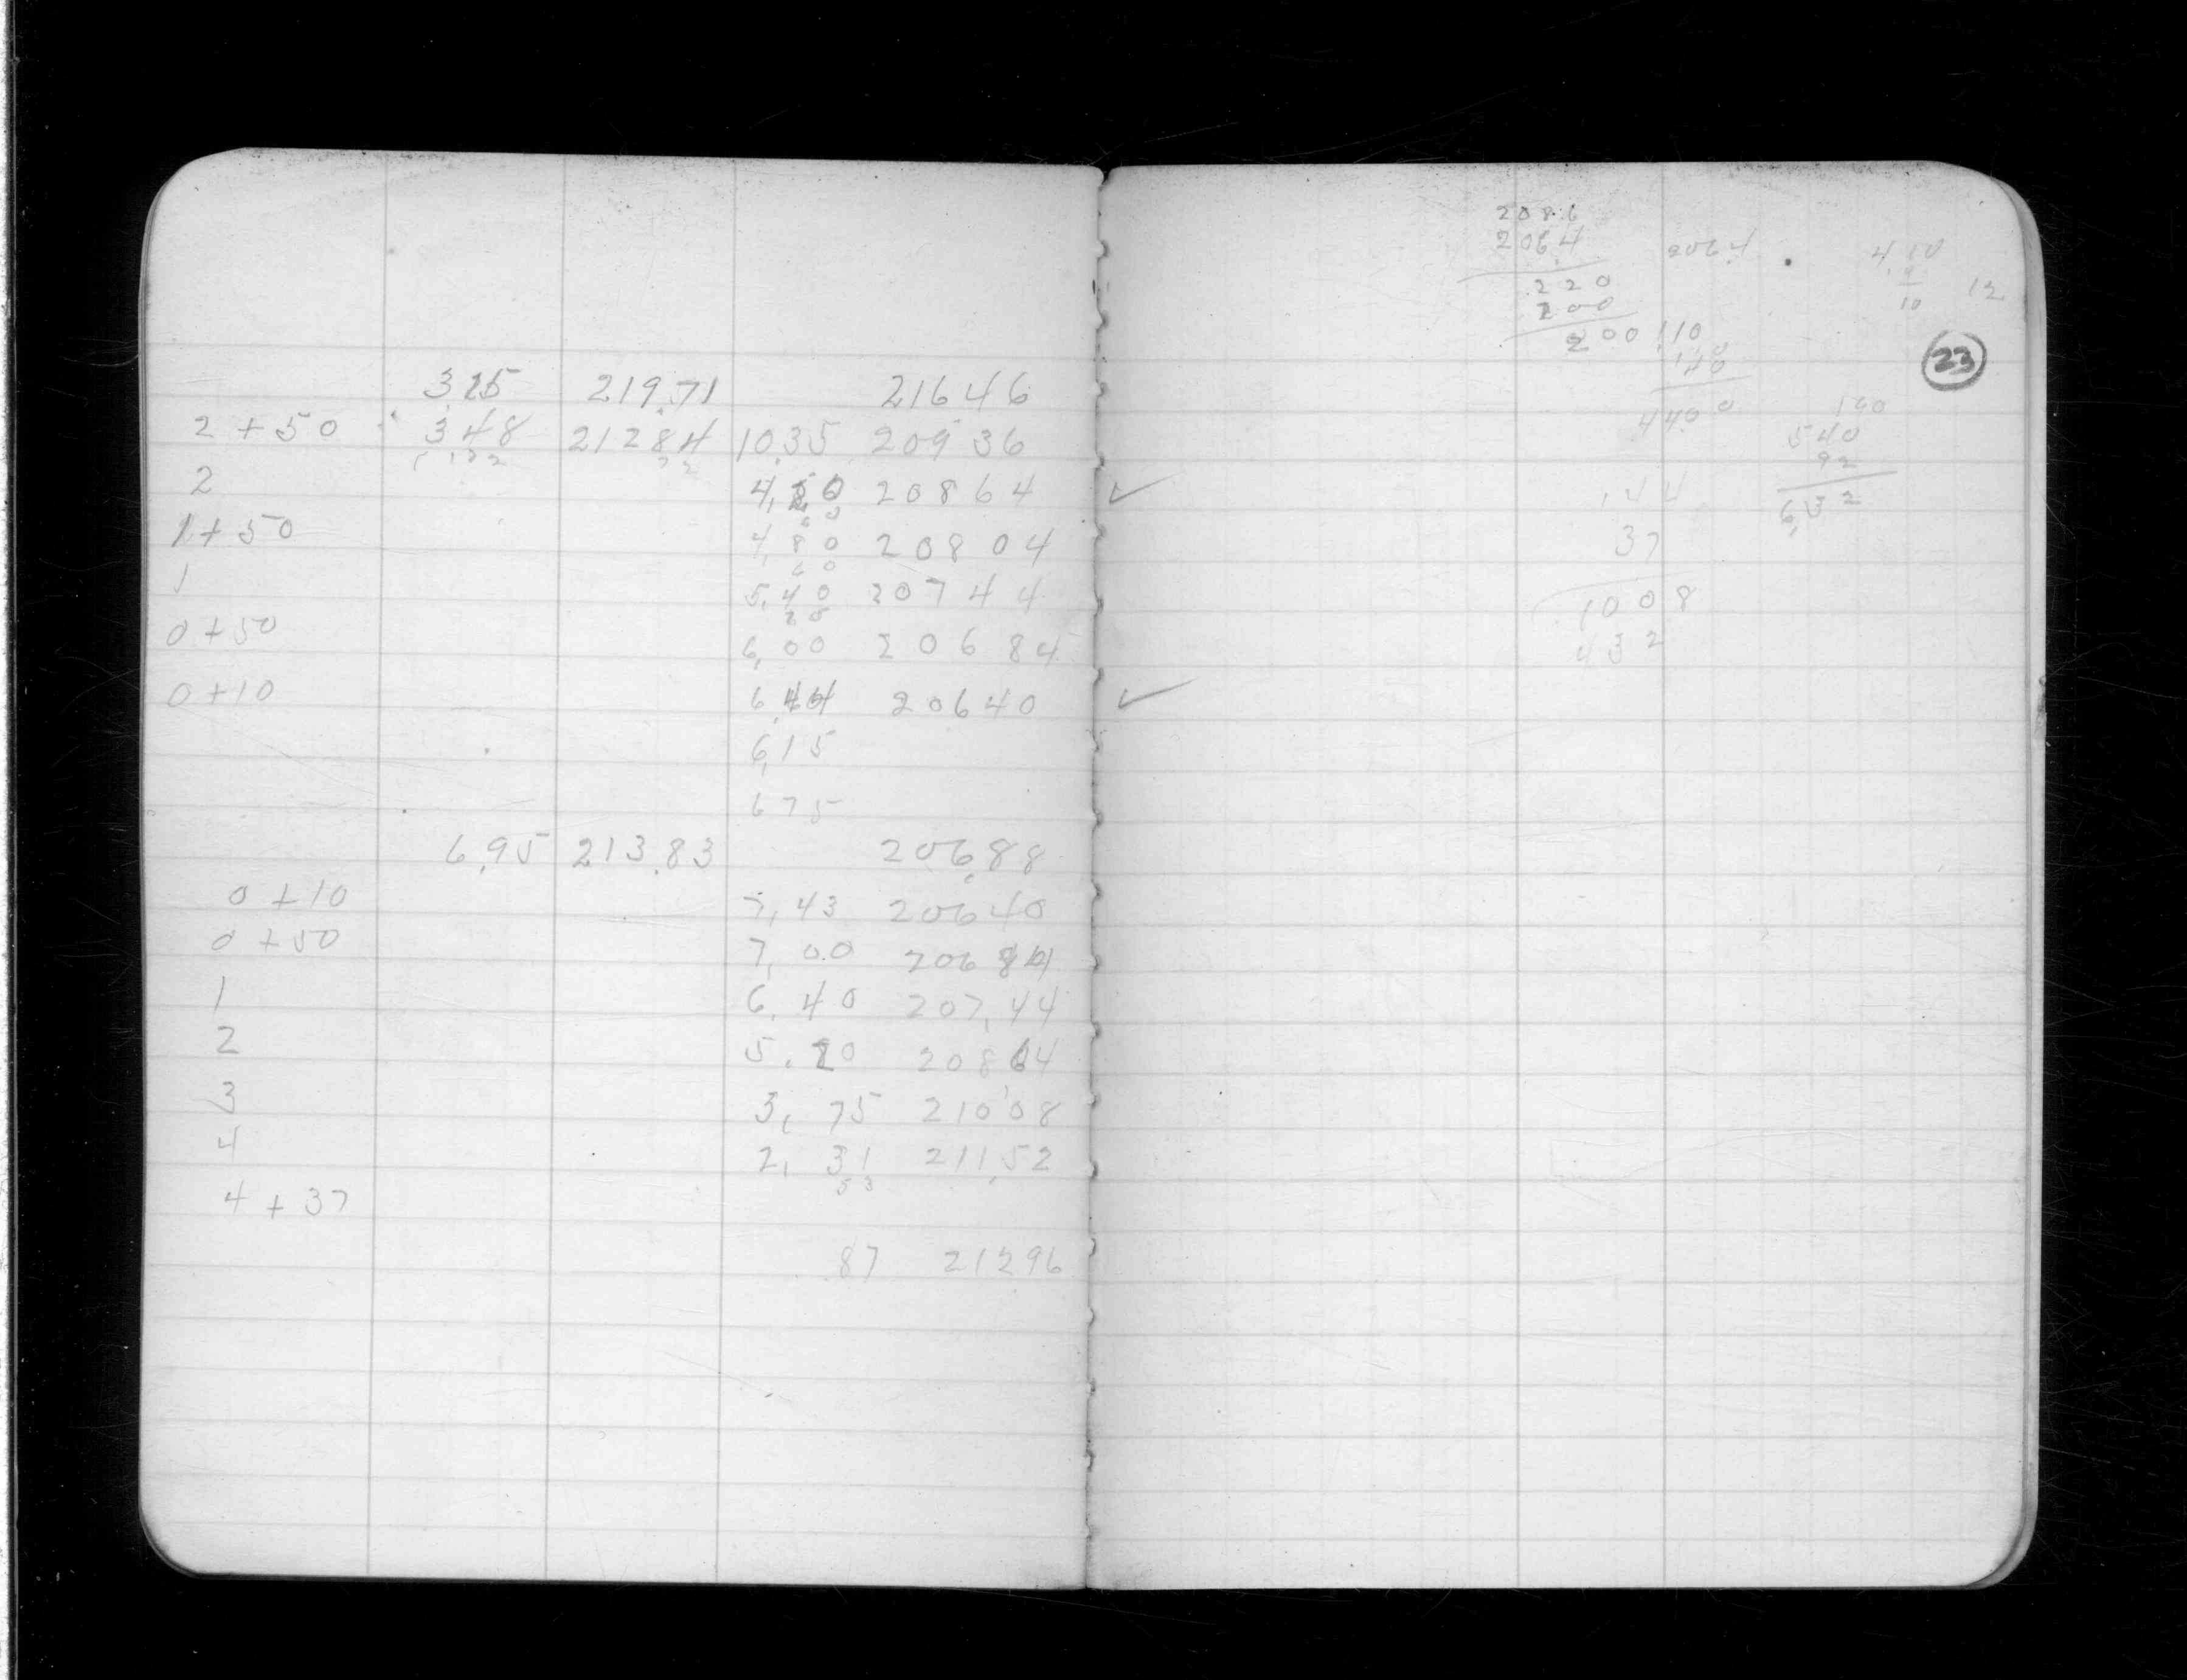 3.25 219.71 21646
2 + 50 348 21284 10.35 209 36
2 4, 0 20864 ✓
60
1 + 50 4, 80 20804
60
1 5, 40 20744
0 + 50 6, 00 20684
0 + 10 6,44 20640 ✓
6,15
675
6.95 213.83 206.88
0 + 10 7, 43 20640
0 + 50 7, 00 20684
1 6. 40 207.44
2 5. 20 20864
3 3, 75 21008
4 2, 31 21152
53
4 + 37
87 21296
2086
206.4 206.4 4.10
9
220 10 12
200
200 110
140
23
4400 160
540
92
144 6,32
37
1008
432